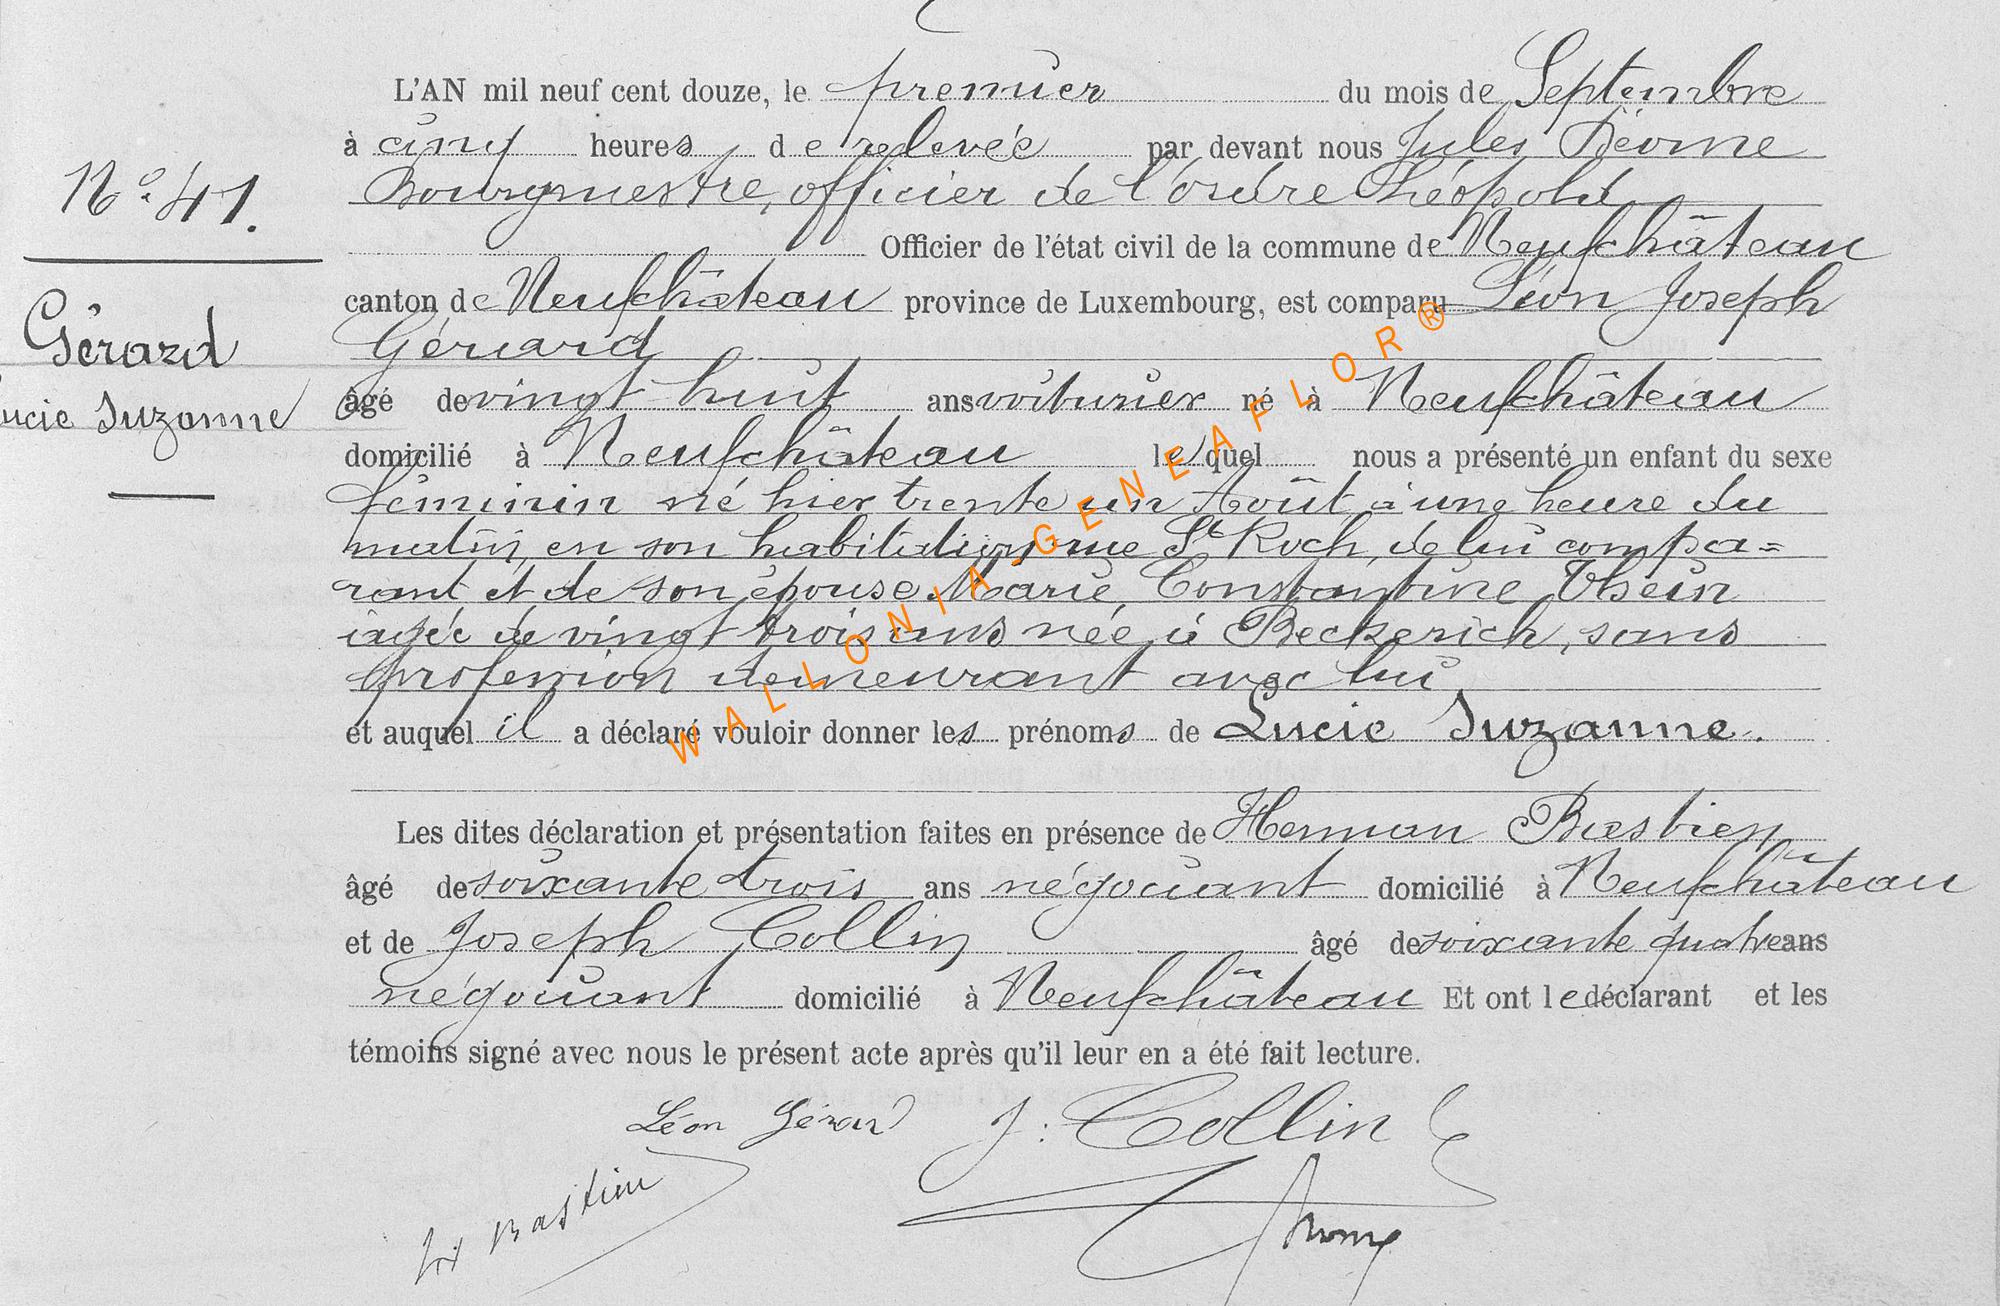 L'AN mil neuf cent douze, le premier du mois de Septembre
à cinq heures de relevée par devant nous Jules
Bourgmestre, officier de l'ordre Léopold
N° 41.
Officier de l'état civil de la commune de Neufchâteau
canton de Neufchâteau province de Luxembourg, est comparu Léon Joseph
Gérard
Gérard
Lucie Suzanne
âgé de vingt huit ans voiturier né à Neufchâteau
domicilié à Neufchâteau lequel nous a présenté un enfant du sexe
féminin né hier trente un Août à une heure du
matin, en son habitation rue St Roch, de lui compa=
rant et de son épouse Marie Constantine
âgée de vingt trois ans née à Beckerich, sans
profession demeurant avec lui
et auquel il a déclaré vouloir donner les prénoms de Lucie Suzanne.
Les dites déclaration et présentation faites en présence de Herman Bastien
âgé de soixante trois ans négociant domicilié à Neufchâteau
et de Joseph Collin âgé de soixante quatre ans
négociant domicilié à Neufchâteau Et ont le déclarant et les
témoins signé avec nous le présent acte après qu'il leur en a été fait lecture.
Léon Gérard J. Collin
Bastien
WALLONIA-GENEAFLOR®